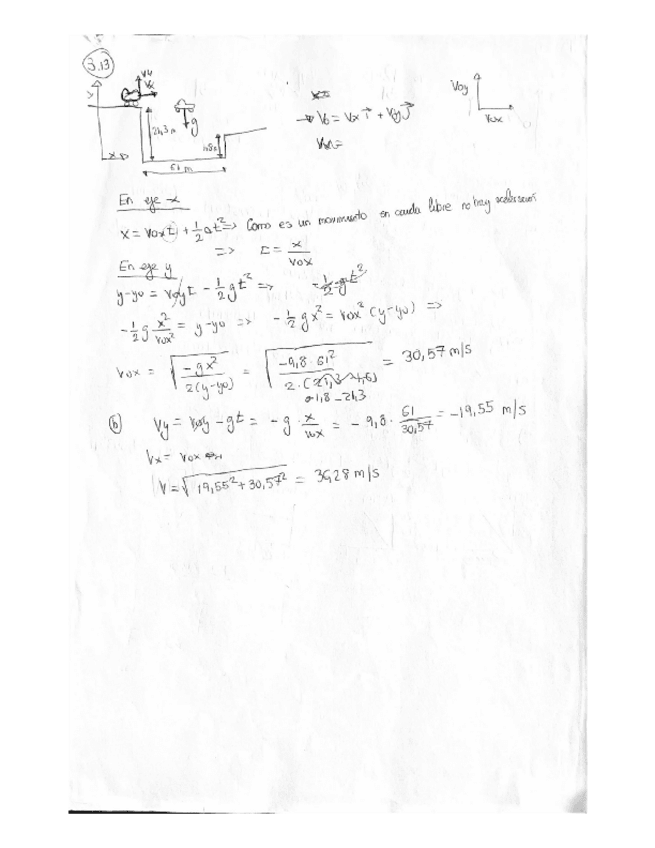 3.13
Vy
Vx
21,3 m
g
1,8
61 m
x
→ V0 = Vx i + Vy j
V0y
V0x
En eje x
x = V0x t + 1/2 a t² => Como es un movimiento en caida libre no hay aceleracion
=> t = x / V0x
En eje y
y-y0 = V0y t - 1/2 g t² => = 1/2 g t²
-1/2 g x²/V0x² = y-y0 => -1/2 g x² = V0x² (y-y0) =>
V0x = √(-g x² / 2(y-y0)) = √(-9,8 · 61² / 2·(21,3 - 1,8)) = 30,57 m/s
1,8 - 21,3
b) Vy = V0y - gt = -g · x/V0x = -9,8 · 61/30,57 = -19,55 m/s
Vx = V0x
V = √(19,55² + 30,57²) = 36,28 m/s